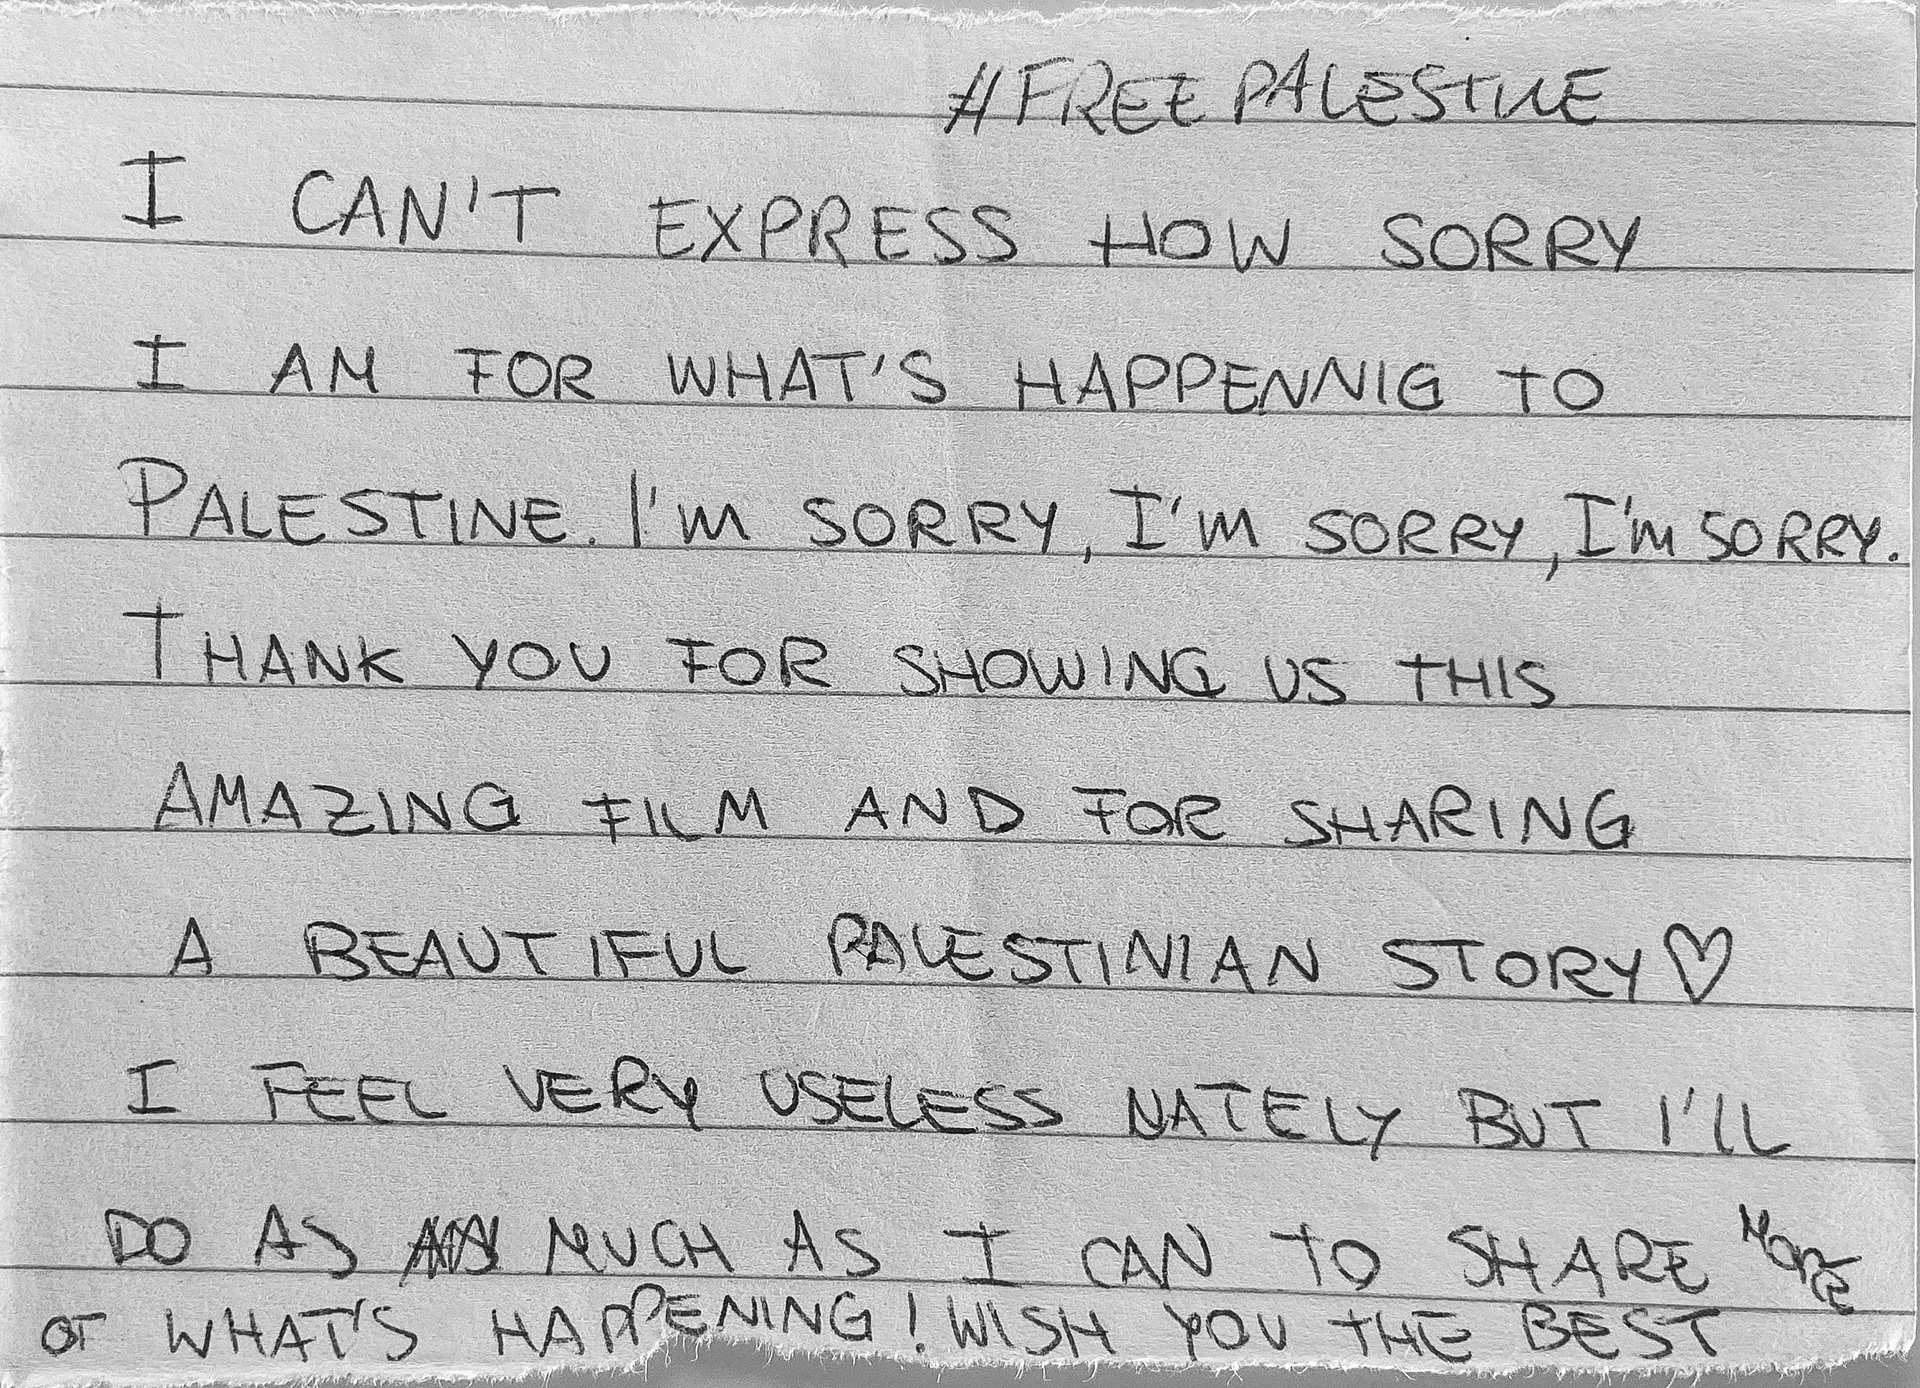 #FREEPALESTINE
I CAN'T EXPRESS HOW SORRY
I AM FOR WHAT'S HAPPENNIG TO
PALESTINE. I'M SORRY, I'M SORRY, I'M SORRY.
THANK YOU FOR SHOWING US THIS
AMAZING FILM AND FOR SHARING
A BEAUTIFUL PALESTINIAN STORY♡
I FEEL VERY USELESS NATELY BUT I'LL
DO AS MUCH AS I CAN TO SHARE MORE
OF WHAT'S HAPPENING! WISH YOU THE BEST